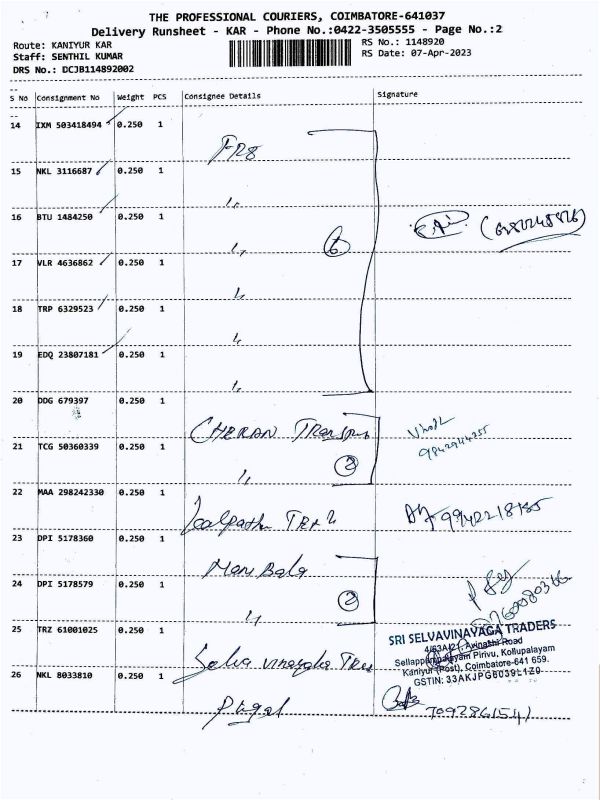 THE PROFESSIONAL COURIERS, COIMBATORE-641037
Delivery Runsheet - KAR - Phone No.:0422-3505555 - Page No.:2
Route: KANIYUR KAR
RS No.: 1148920
Staff: SENTHIL KUMAR
RS Date: 07-Apr-2023
DRS No.: DCJB114892002
S No Consignment No Weight PCS Consignee Details Signature
14 IXM 503418494 0.250 1
FR8
15 NKL 3116687 0.250 1
〃
16 BTU 1484250 0.250 1
〃 6
17 VLR 4636862 0.250 1
〃
18 TRP 6329523 0.250 1
〃
19 EDQ 23807181 0.250 1
〃
20 DDG 679397 0.250 1
CHERAN
9842944255
21 TCG 50360339 0.250 1
〃 2
22 MAA 298242330 0.250 1
23 DPI 5178360 0.250 1
Mani Bala
24 DPI 5178579 0.250 1
〃 2
25 TRZ 61001025 0.250 1
Selva vinayaka
SRI SELVAVINAYAGA TRADERS
4/63A/21, Avinashi Road
Pirivu, Kollupalayam
Kaniyur (Post), Coimbatore-641 659.
GSTIN: 33AKJPG6039L1Z0
26 NKL 8033810 0.250 1
Pugal
7092861541